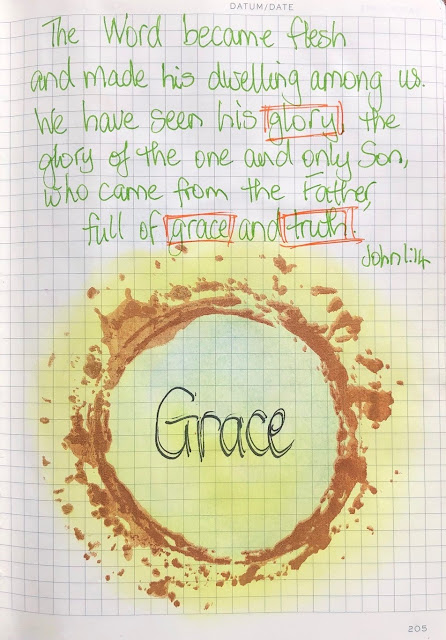 DATUM/DATE
The Word became flesh
and made his dwelling among us.
We have seen his glory, the
glory of the one and only Son,
who came from the Father,
full of grace and truth.
John 1:14
Grace
205